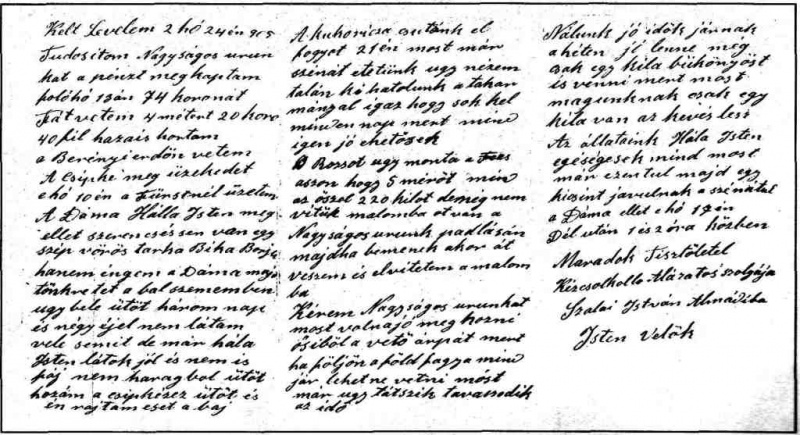 Kelt Levelem 2 hó 24én 905
Tudositom Nagyságos urun
kat a pénzt meg kaptam
folóhó 13án 74 koronát
Fát vetem 4 métert 20 koro
40 fil hazais hortam
a Berényi erdőn vetem
A Csipké meg üzekedet
e hó 10én a Fürstnél üzetem
A Dáma Hálla Isten meg
ellet szerencséssen van egy
szép vörös tarka Bika Borja
hanem engem a Dáma meg
tönkretet a bal szememben
ugy bele ütöt három nap
is négy éjel nem látam
vele semit de már hála
Isten látok jól és nem is
fáj nem haragbol ütöt
hozám a csipkéhez ütöt és
én rajtam eset a baj
A kukoricza csutánk el
fogyot 21én most már
szénát etetünk ugy nézem
talán ki hatolunk a takar
mányal igaz hogy sok kel
minden nap mert mind
igen jó ehetösek
A Rozsot ugy monta a
asson hogy 5 mérőt min
az öszöl 220 kilot de még nem
vitük malomba ot ván a
Nagyságos urunk padlásán
majd ha bemenek akor át
veszem és elvitetem a malom
ba
Kérem Nagyságos urunkat
most volna jó meg hozni
ősiből a vető árpát mert
ha följön a föld fagya mind
jár lehetne vetni móst
már ugy tátszik tavassodik
az idő
Nálunk jó idők járnak
a héten jó lenne meg
csak egy kila bükönyöst
is venni mert most
magunknak csak egy
kila van az kevés less
Az állataink Hála Isten
egéségesek mind most
már ezentul majd egy
kicsint javulnak a szénátul
a Dáma ellet e hó 17én
Dél után 1 és 2 óra közben
Maradok Tisztöletel
Kézcsokolló Alázatos szolgája
Szalai István Almádiba
Isten Velök